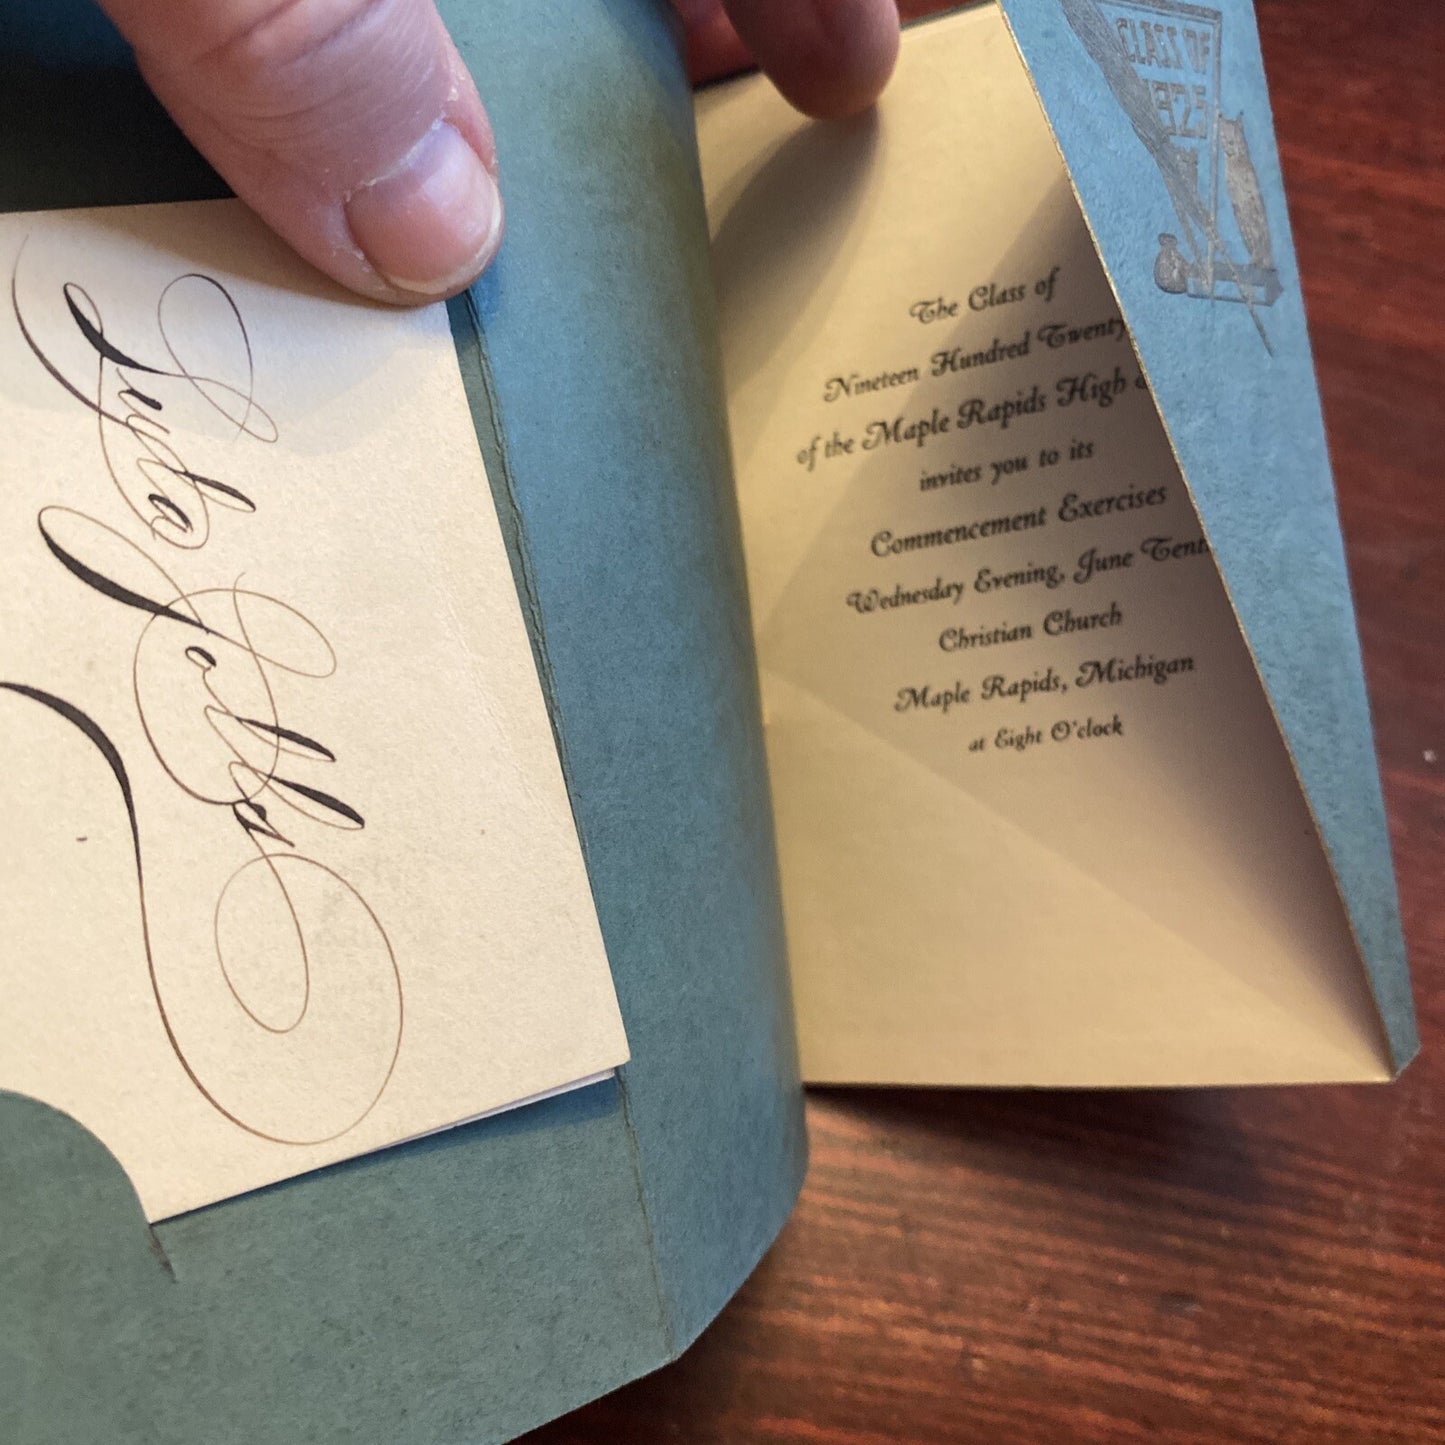 CLASS OF
1925
The Class of
Nineteen Hundred Twenty
of the Maple Rapids High
invites you to its
Commencement Exercises
Wednesday Evening, June Tent
Christian Church
Maple Rapids, Michigan
at Eight O'clock